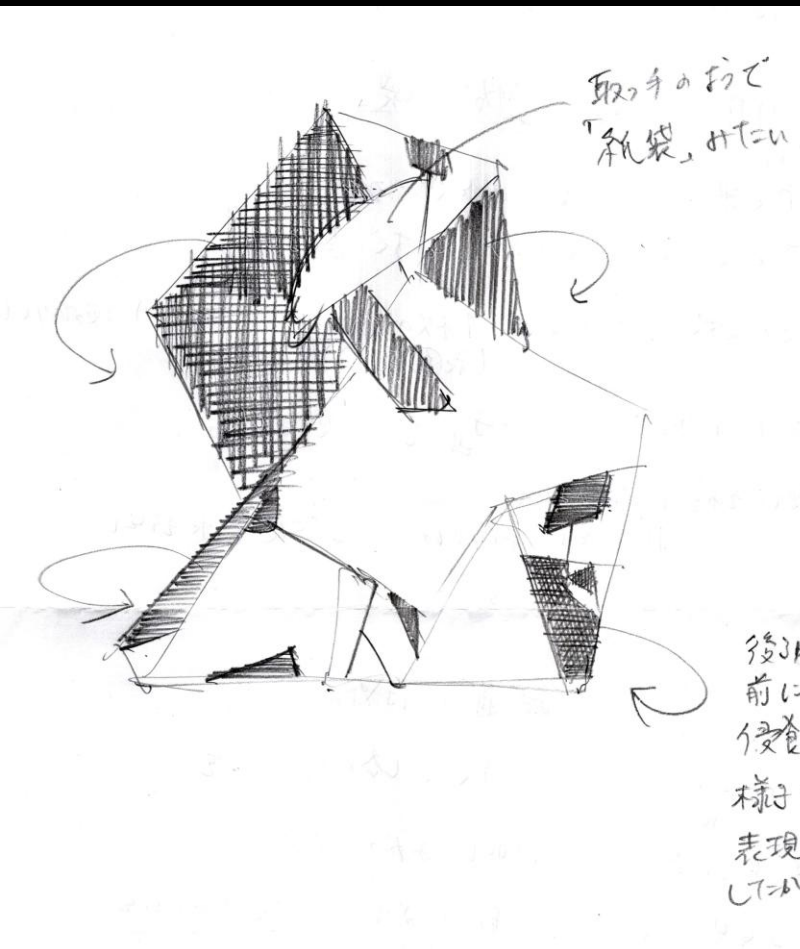 取っ手のようで
「紙袋」みたい
後ろ
前に
侵食
様子
表現
したか